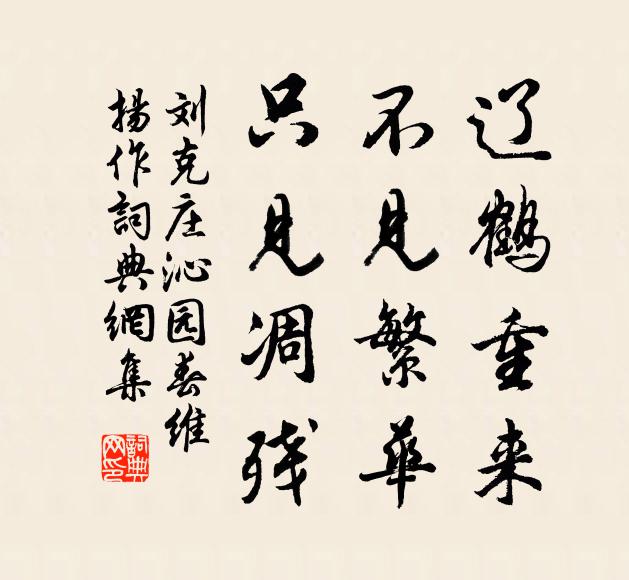 辽鹤重来
不见繁华
只见凋残
刘克庄沁园春维
揚作詞典網集
詞典网印